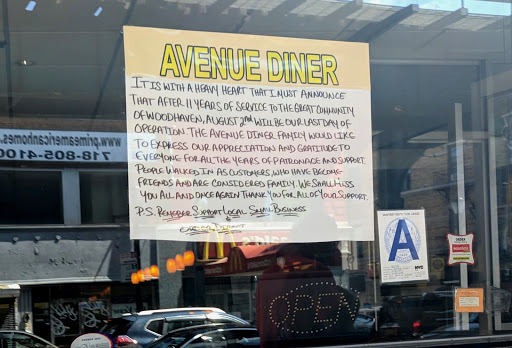 AVENUE DINER
IT IS WITH A HEAVY HEART THAT I MUST ANNOUNCE
THAT AFTER 11 YEARS OF SERVICE TO THE GREAT COMMUNITY
OF WOODHAVEN, AUGUST 2nd WILL BE OUR LAST DAY OF
OPERATION. THE AVENUE DINER FAMILY WOULD LIKE
TO EXPRESS OUR APPRECIATION AND GRATITUDE TO
EVERYONE FOR ALL THE YEARS OF PATRONAGE AND SUPPORT.
PEOPLE WALKED IN AS CUSTOMERS, WHO HAVE BECOME
FRIENDS AND ARE CONSIDERED FAMILY. WE SHALL MISS
YOU ALL AND ONCE AGAIN THANK YOU FOR ALL OF YOUR SUPPORT.
P.S. REMEMBER SUPPORT LOCAL SMALL BUSINESS
www.primeamericanhomes.
718-805-4100
A
NYC
OPEN